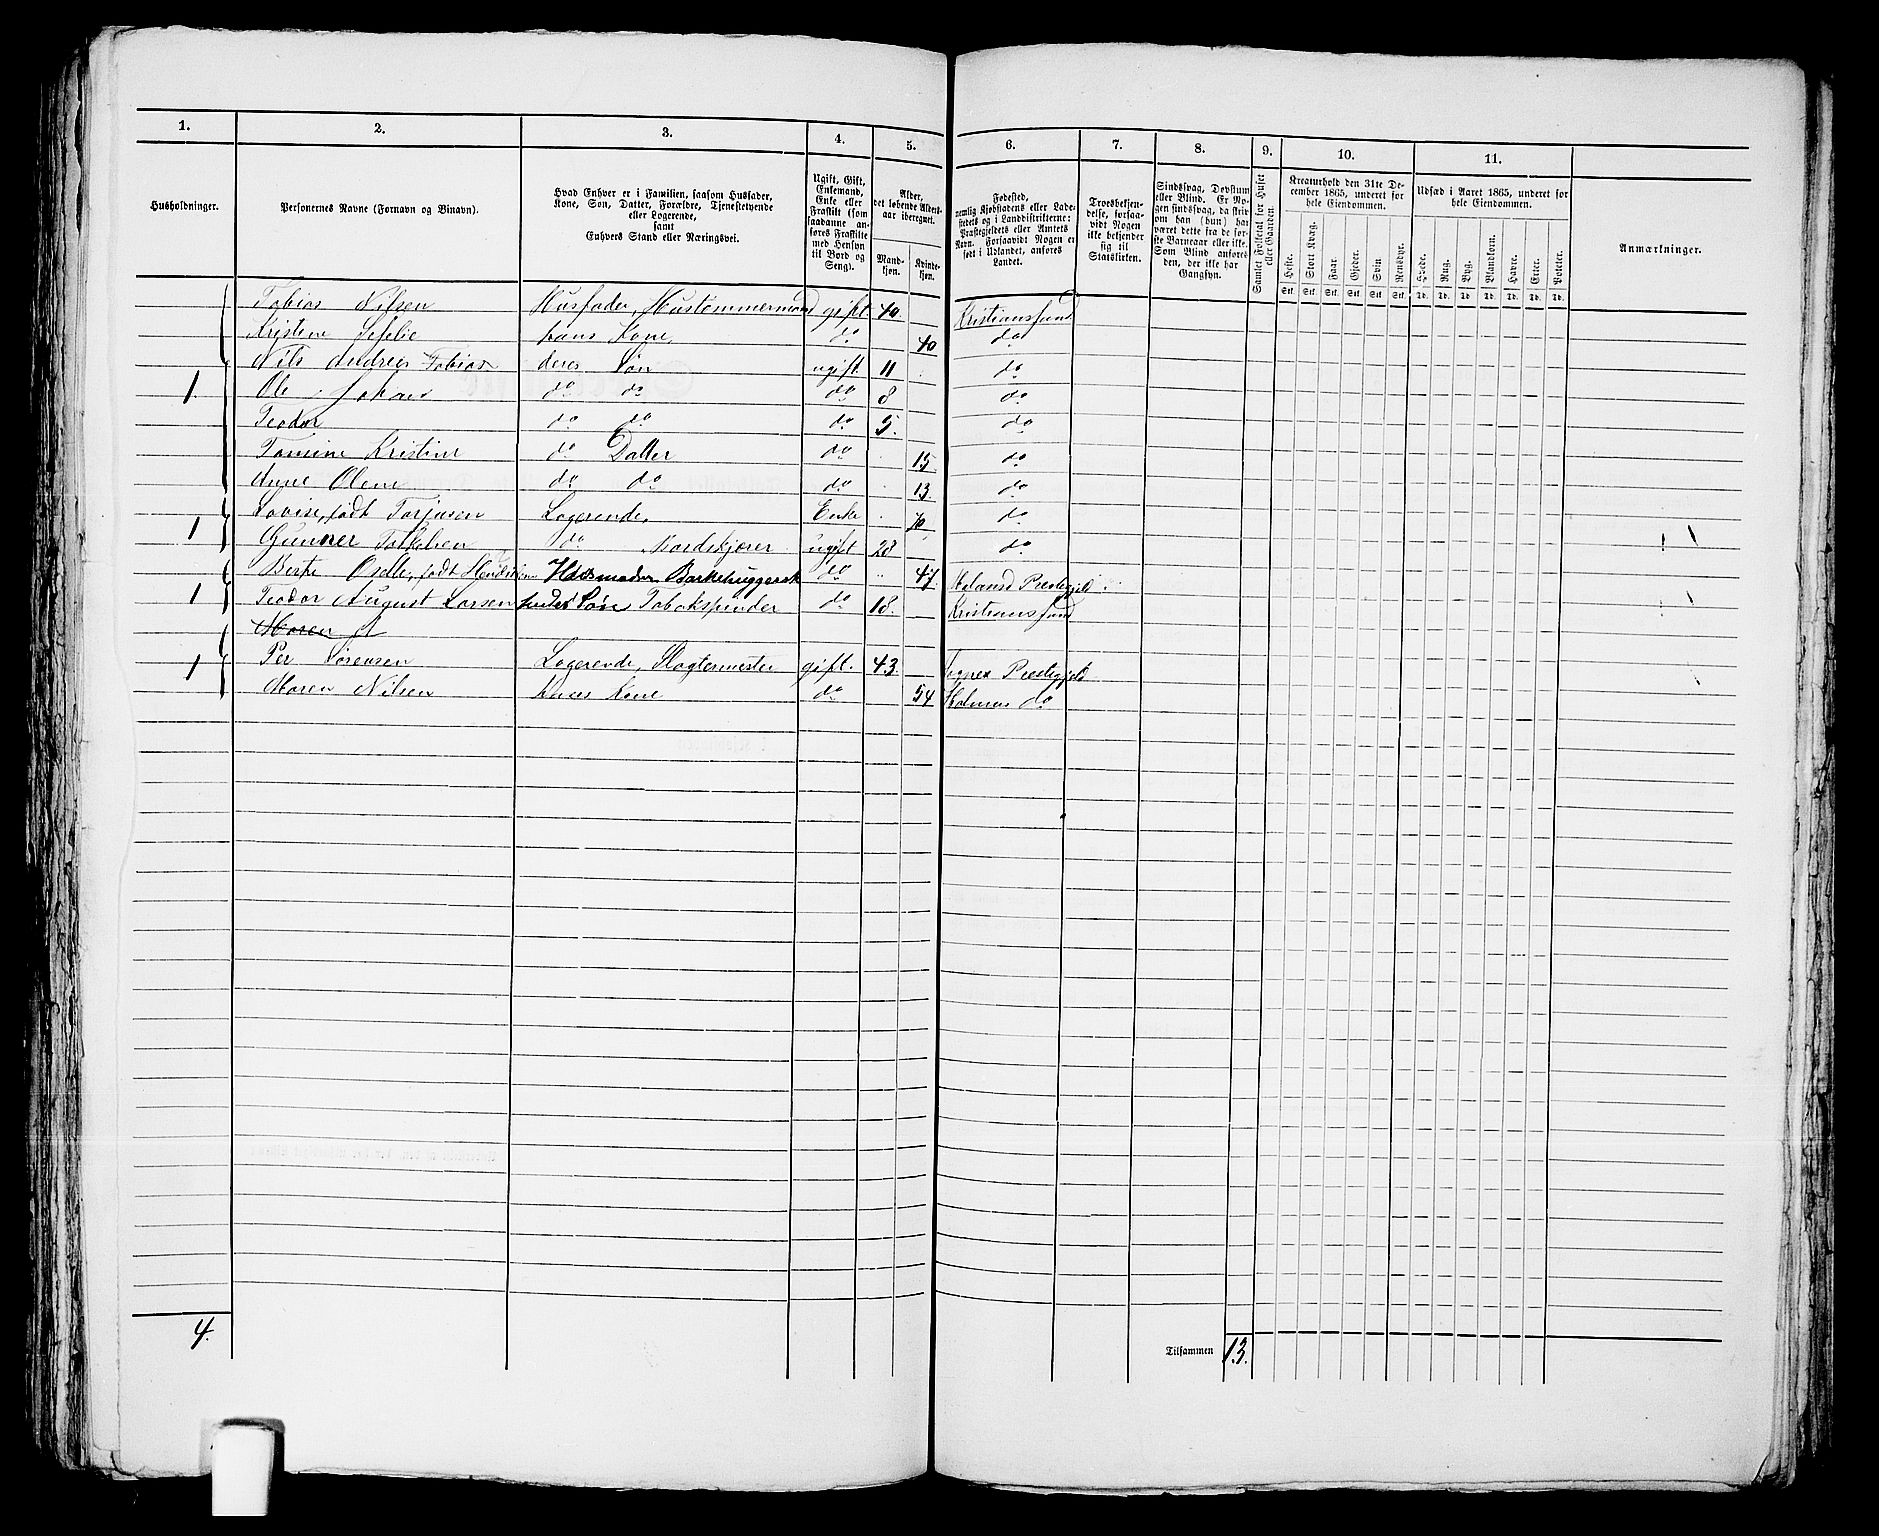 1. 2. 3. 4. 5. 6. 7. 8. 9. 10. 11.
Husholdninger.
Personernes Navne (Fornavn og Binavn).
Hvad Enhver er i Familien, saasom Husfader, Kone, Søn, Datter, Forældre, Tjenestetyende eller Logerende, samt Enhvers Stand eller Næringsvei.
Ugift, Gift, Enkemand, Enke eller Fraskilt (som saadanne anføres Fraskilte med Hensyn til Bord og Seng).
Alder, det løbende Aldersaar iberegnet.
Mandkjøn. Kvindekjøn.
Fødested, nemlig Kjøbstadens eller Ladestedets og i Landdistrikterne: Præstegjeldets eller Amtets Navn. Forsaavidt Nogen er født i Udlandet, anføres Landet.
Troesbekjendelse, forsaavidt Nogen ikke bekjender sig til Statskirken.
Sindssvag, Døvstum eller Blind. Er Nogen sindssvag, da skriv om han (hun) har været dette fra de første Barneaar eller ikke. Som Blind anføres den, der ikke har Gangsyn.
Samlet Folketal for Huset eller Gaarden.
Kreaturhold den 31te December 1865, underet for hele Eiendommen.
Heste. Stort Kvæg. Faar. Gjeder. Svin. Rensdyr.
Stk. Stk. Stk. Stk. Stk. Stk.
Udsæd i Aaret 1865, underet for hele Eiendommen.
Hvede. Rug. Byg. Blandkorn. Havre. Erter. Poteter.
Td. Td. Td. Td. Td. Td. Td.
Anmærkninger.
Tobias Nilsen Husfader, Hustømmermand gift. 40. Kristianssund
Kristine hans Kone, do 40 do
Nils Andreas Tobias deres Søn ugift. 11 do
1. Ole Johan do do do 8 do
Teodor do do do 5. do
Tomine Kristine do Datter do 15 do
Anne Olene do do do 13. do
Lovise, født Torjusen Logerende, Enke 70 do
1 Gunner do ugift 28 do
født Husmoder, do 47. Præstegjeld
1 Teodor August Larsen Søn Tobakspinder do 18. Kristianssund
Maren
1 Per Sørensen Logerende, Slagtermester gift. 43. Præstegjeld
Maren Nilsen hans Kone do 54 do
4.
Tilsammen 13.